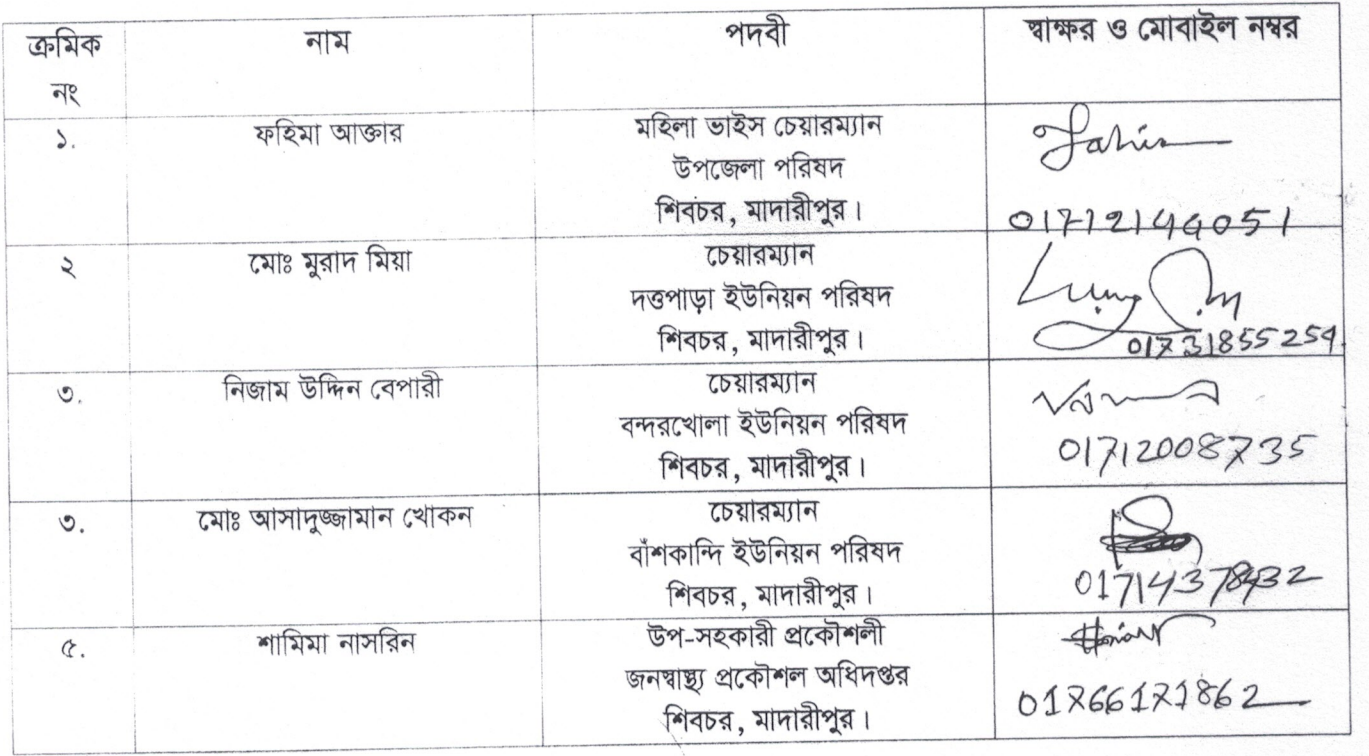 ক্রমিক নং নাম পদবী স্বাক্ষর ও মোবাইল নম্বর
১. ফহিমা আক্তার মহিলা ভাইস চেয়ারম্যান
উপজেলা পরিষদ
শিবচর, মাদারীপুর।
২ মোঃ মুরাদ মিয়া চেয়ারম্যান
দত্তপাড়া ইউনিয়ন পরিষদ
শিবচর, মাদারীপুর। 01731855254
৩. নিজাম উদ্দিন বেপারী চেয়ারম্যান
বন্দরখোলা ইউনিয়ন পরিষদ
শিবচর, মাদারীপুর। 01712008735
৩. মোঃ আসাদুজ্জামান খোকন চেয়ারম্যান
বাঁশকান্দি ইউনিয়ন পরিষদ
শিবচর, মাদারীপুর। 01714378432
৫. শামিমা নাসরিন উপ-সহকারী প্রকৌশলী
জনস্বাস্থ্য প্রকৌশল অধিদপ্তর
শিবচর, মাদারীপুর। 01766171862